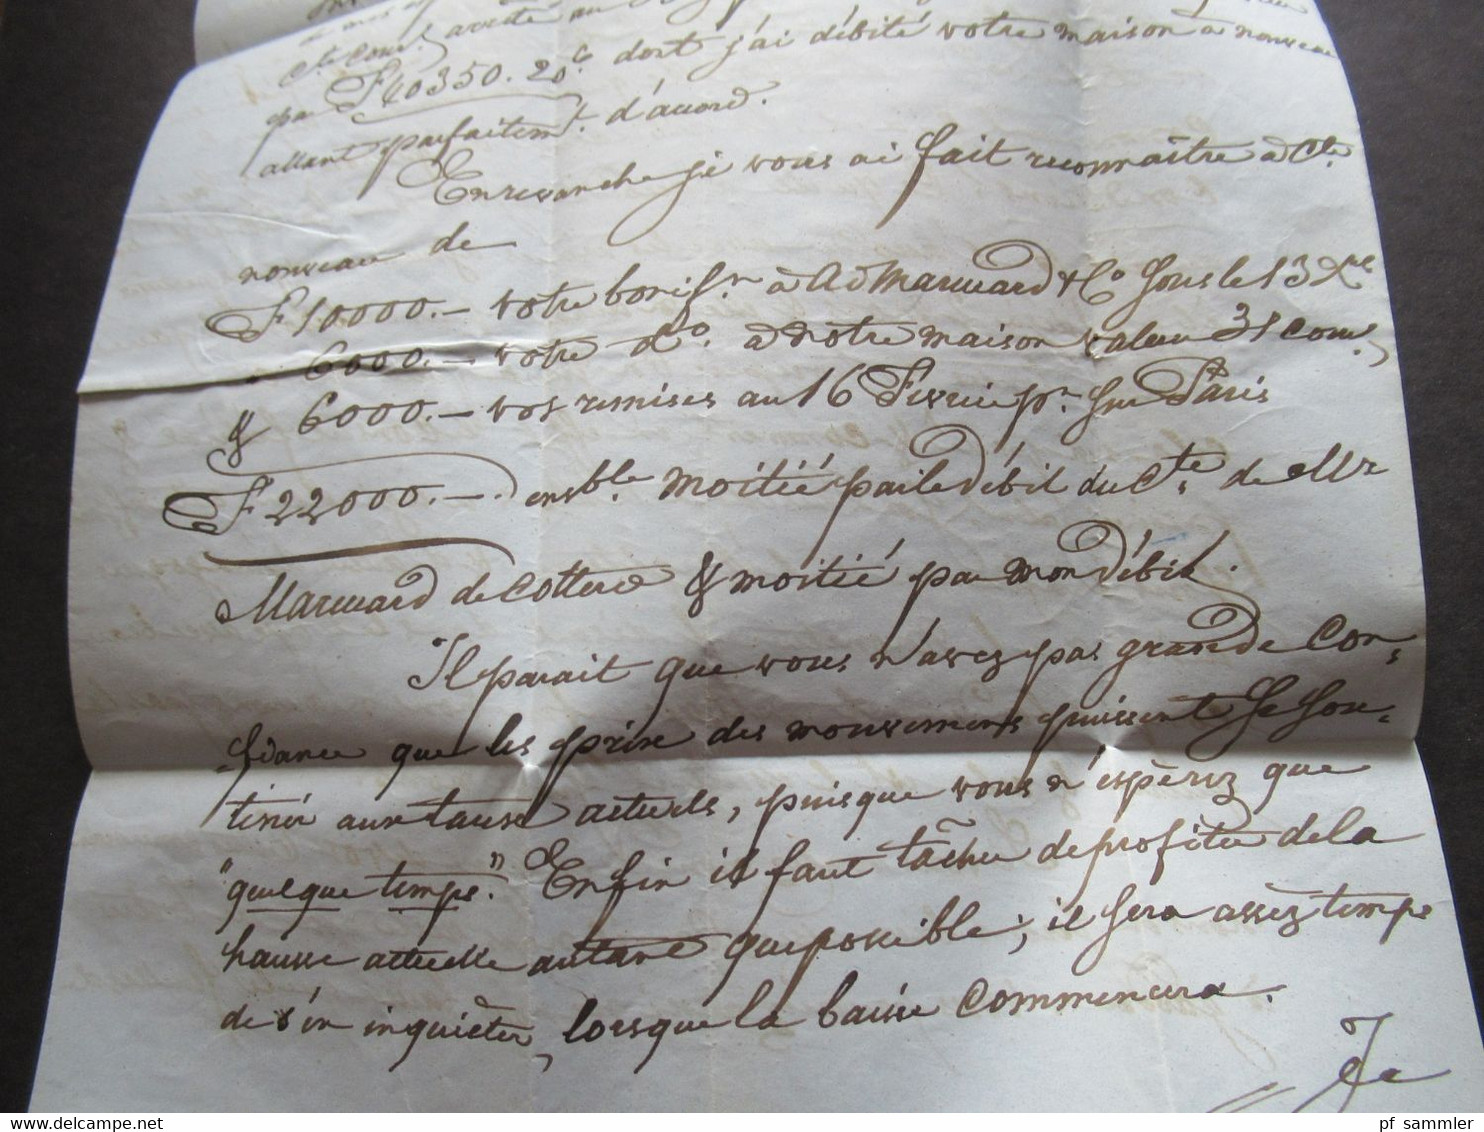 Cte Cour.t arrêté au
par F 40350.20c dont j'ai débité votre maison à nouveau
allant parfaitemt. d'accord.
En revanche je vous ai fait reconnaître à Cte
nouveau de
F 10000.— votre bonif.n à Ad Marcuard & Co sous le 13 Xre
" 6000.— votre do. à notre maison valeur 31 Cour.t
& 6000.— vos remises au 16 Fevrier pr. sur Paris
F 22000.—. ensble. moitié par le débit du Cte. de Mr
Marcuard de Cottere & moitié par mon débit.
Il parait que vous n'avez pas grande Con-
fiance que les prix des mouvements puissent se sou-
tenir aux taux actuels, puisque vous n'espèrez que
"quelque temps". Enfin il faut tâcher de profiter de la
hausse actuelle autant que possible, il sera assez temps
de s'en inquièter, lorsque la baisse commencera.
Je
www.delcampe.net
pf_sammler